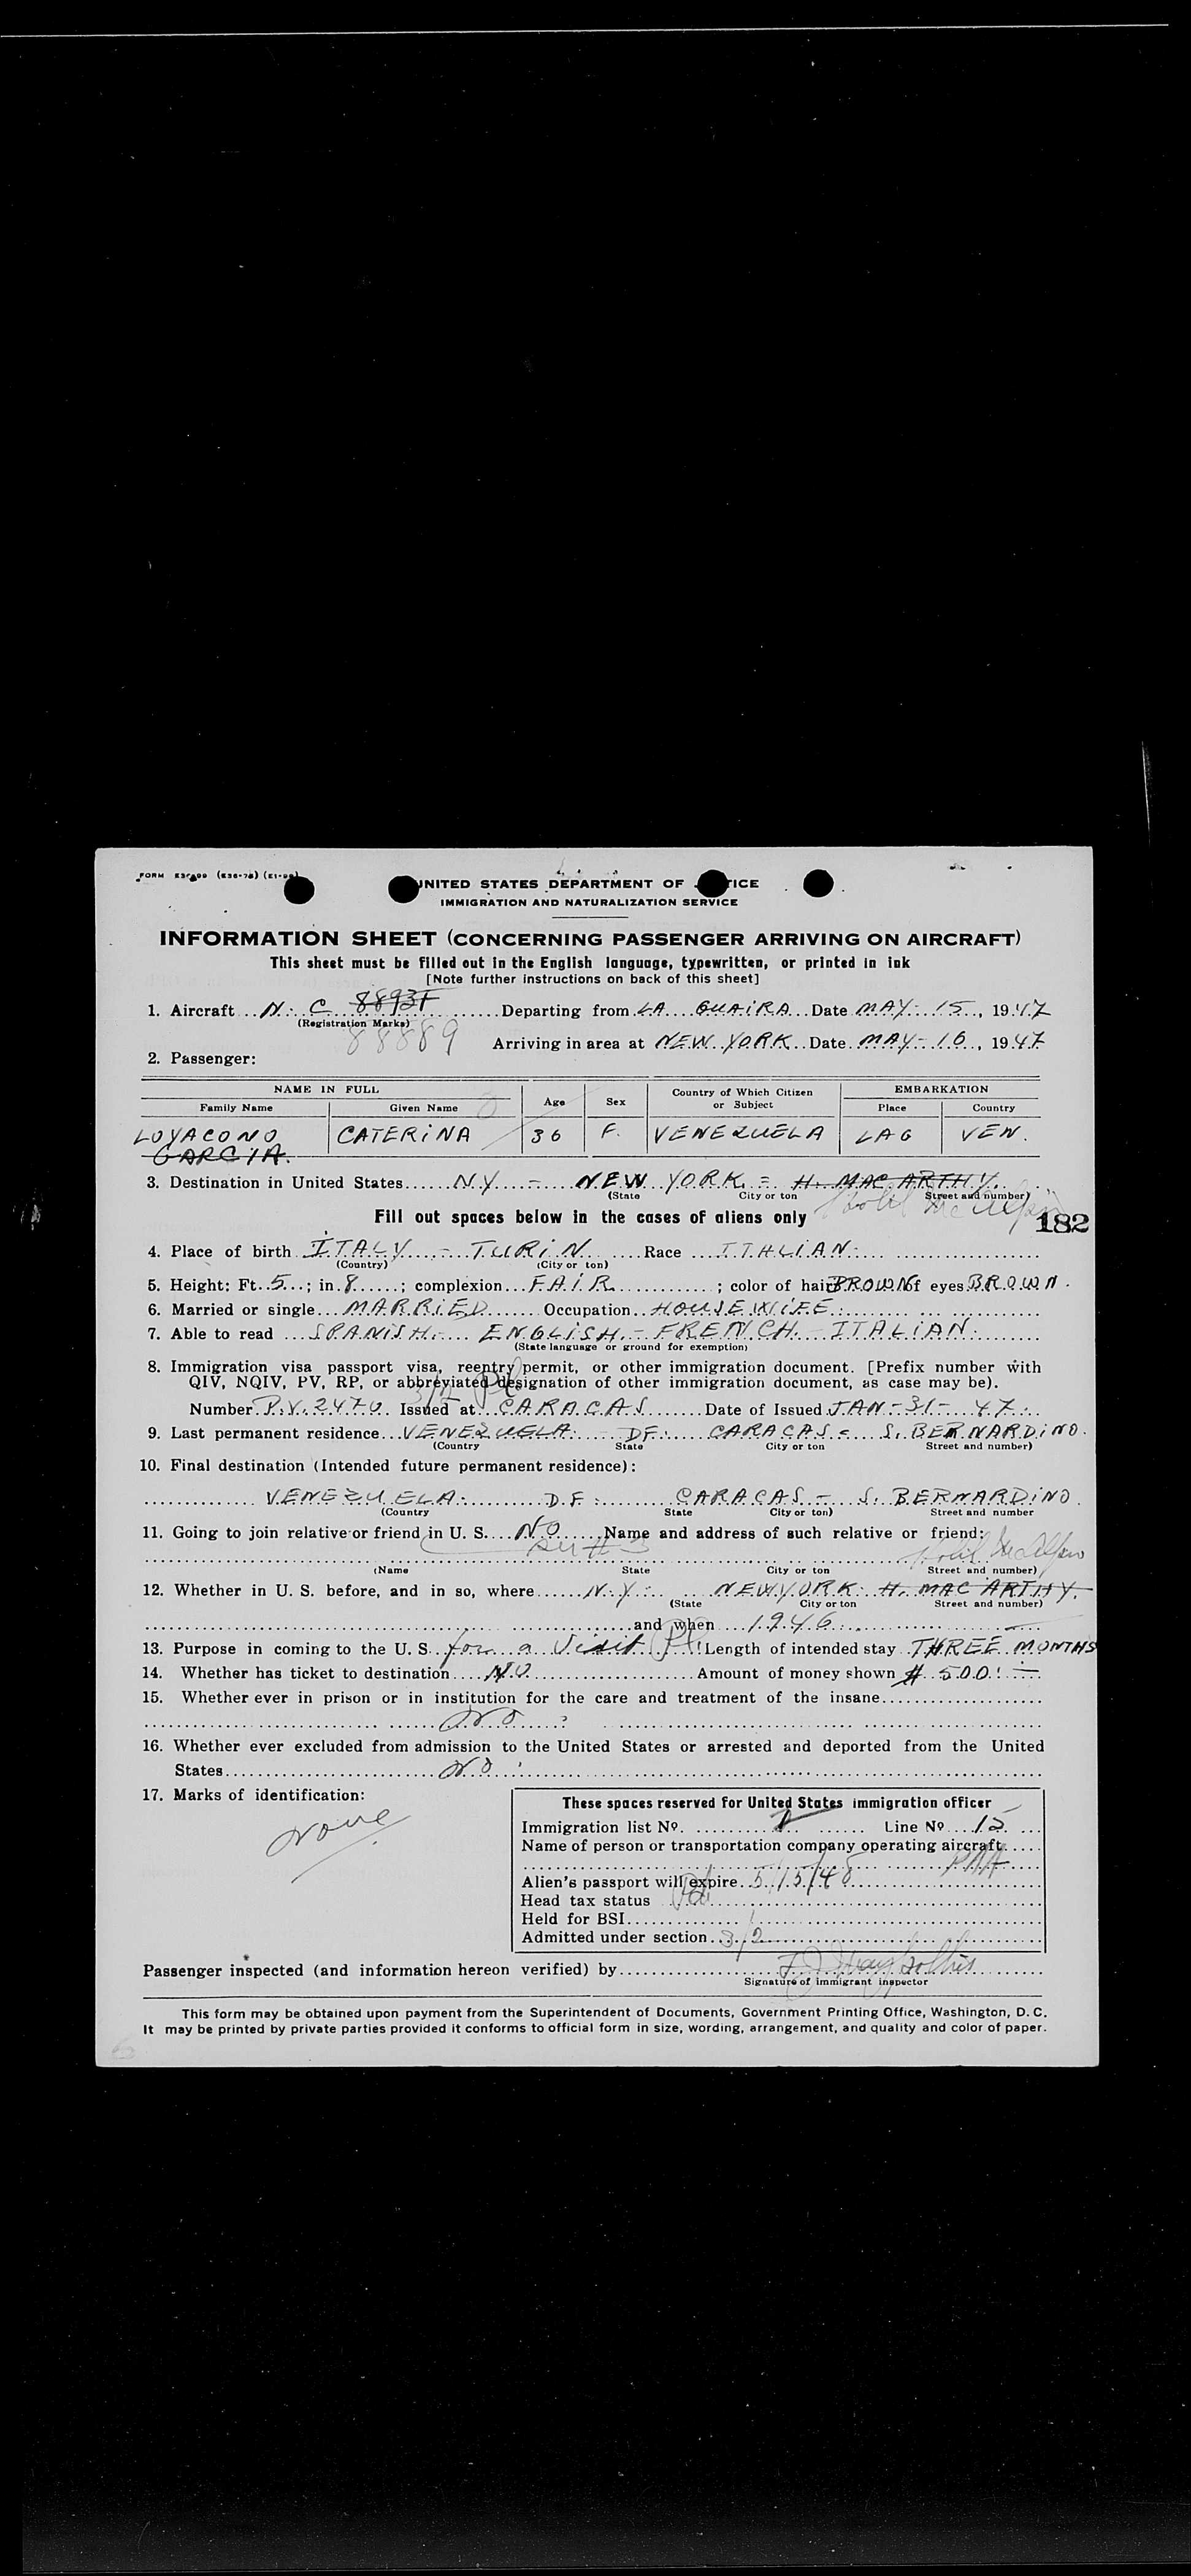 UNITED STATES DEPARTMENT OF TICE
IMMIGRATION AND NATURALIZATION SERVICE
INFORMATION SHEET (CONCERNING PASSENGER ARRIVING ON AIRCRAFT)
This sheet must be filled out in the English language, typewritten, or printed in ink
[Note further instructions on back of this sheet]
1. Aircraft N. C 8893F Departing from LA GUAIRA Date MAY 15, 1947
(Registration Marks)
88889 Arriving in area at NEW YORK Date MAY-16, 1947
2. Passenger:
NAME IN FULL Age Sex Country of Which Citizen or Subject EMBARKATION
Family Name Given Name Place Country
LOYACONO CATERINA 36 F. VENEZUELA LAG VEN.
GARCIA.
3. Destination in United States NY - NEW YORK = H. MAC ARTHY.
(State City or ton Street and number)
Fill out spaces below in the cases of aliens only Hotel Mc Alpin 182
4. Place of birth ITALY - TURIN Race ITALIAN.
(Country) (City or ton)
5. Height: Ft. 5; in. 8; complexion FAIR; color of hair BROWN of eyes BROWN.
6. Married or single MARRIED Occupation HOUSEWIFE.
7. Able to read SPANISH. ENGLISH.- FRENCH.- ITALIAN.
(State language or ground for exemption)
8. Immigration visa passport visa, reentry permit, or other immigration document. [Prefix number with
QIV, NQIV, PV, RP, or abbreviated designation of other immigration document, as case may be).
3/2
Number P.V. 2470 Issued at CARACAS Date of Issued JAN-31- 47.
9. Last permanent residence VENEZUELA. DF. CARACAS = S. BERNARDINO.
(Country State City or ton Street and number)
10. Final destination (Intended future permanent residence):
VENEZUELA. D.F. CARACAS - S. BERNARDINO.
(Country State City or ton) Street and number
11. Going to join relative or friend in U. S. NO Name and address of such relative or friend:
Hotel McAlpin
(Name State City or ton Street and number)
12. Whether in U. S. before, and in so, where N.Y. NEWYORK H. MAC ARTHY.
(State City or ton Street and number)
and when 1946
13. Purpose in coming to the U. S. for a visit Pl. Length of intended stay THREE MONTHS
14. Whether has ticket to destination NO Amount of money shown $ 500.-
15. Whether ever in prison or in institution for the care and treatment of the insane
No
16. Whether ever excluded from admission to the United States or arrested and deported from the United
States No
17. Marks of identification:
None
These spaces reserved for United States immigration officer
Immigration list Nº. 2 Line Nº 15
Name of person or transportation company operating aircraft
PAA
Alien's passport will expire 5/15/48
Head tax status Pd
Held for BSI
Admitted under section 3/2
Passenger inspected (and information hereon verified) by
Signature of immigrant inspector
This form may be obtained upon payment from the Superintendent of Documents, Government Printing Office, Washington, D. C.
It may be printed by private parties provided it conforms to official form in size, wording, arrangement, and quality and color of paper.